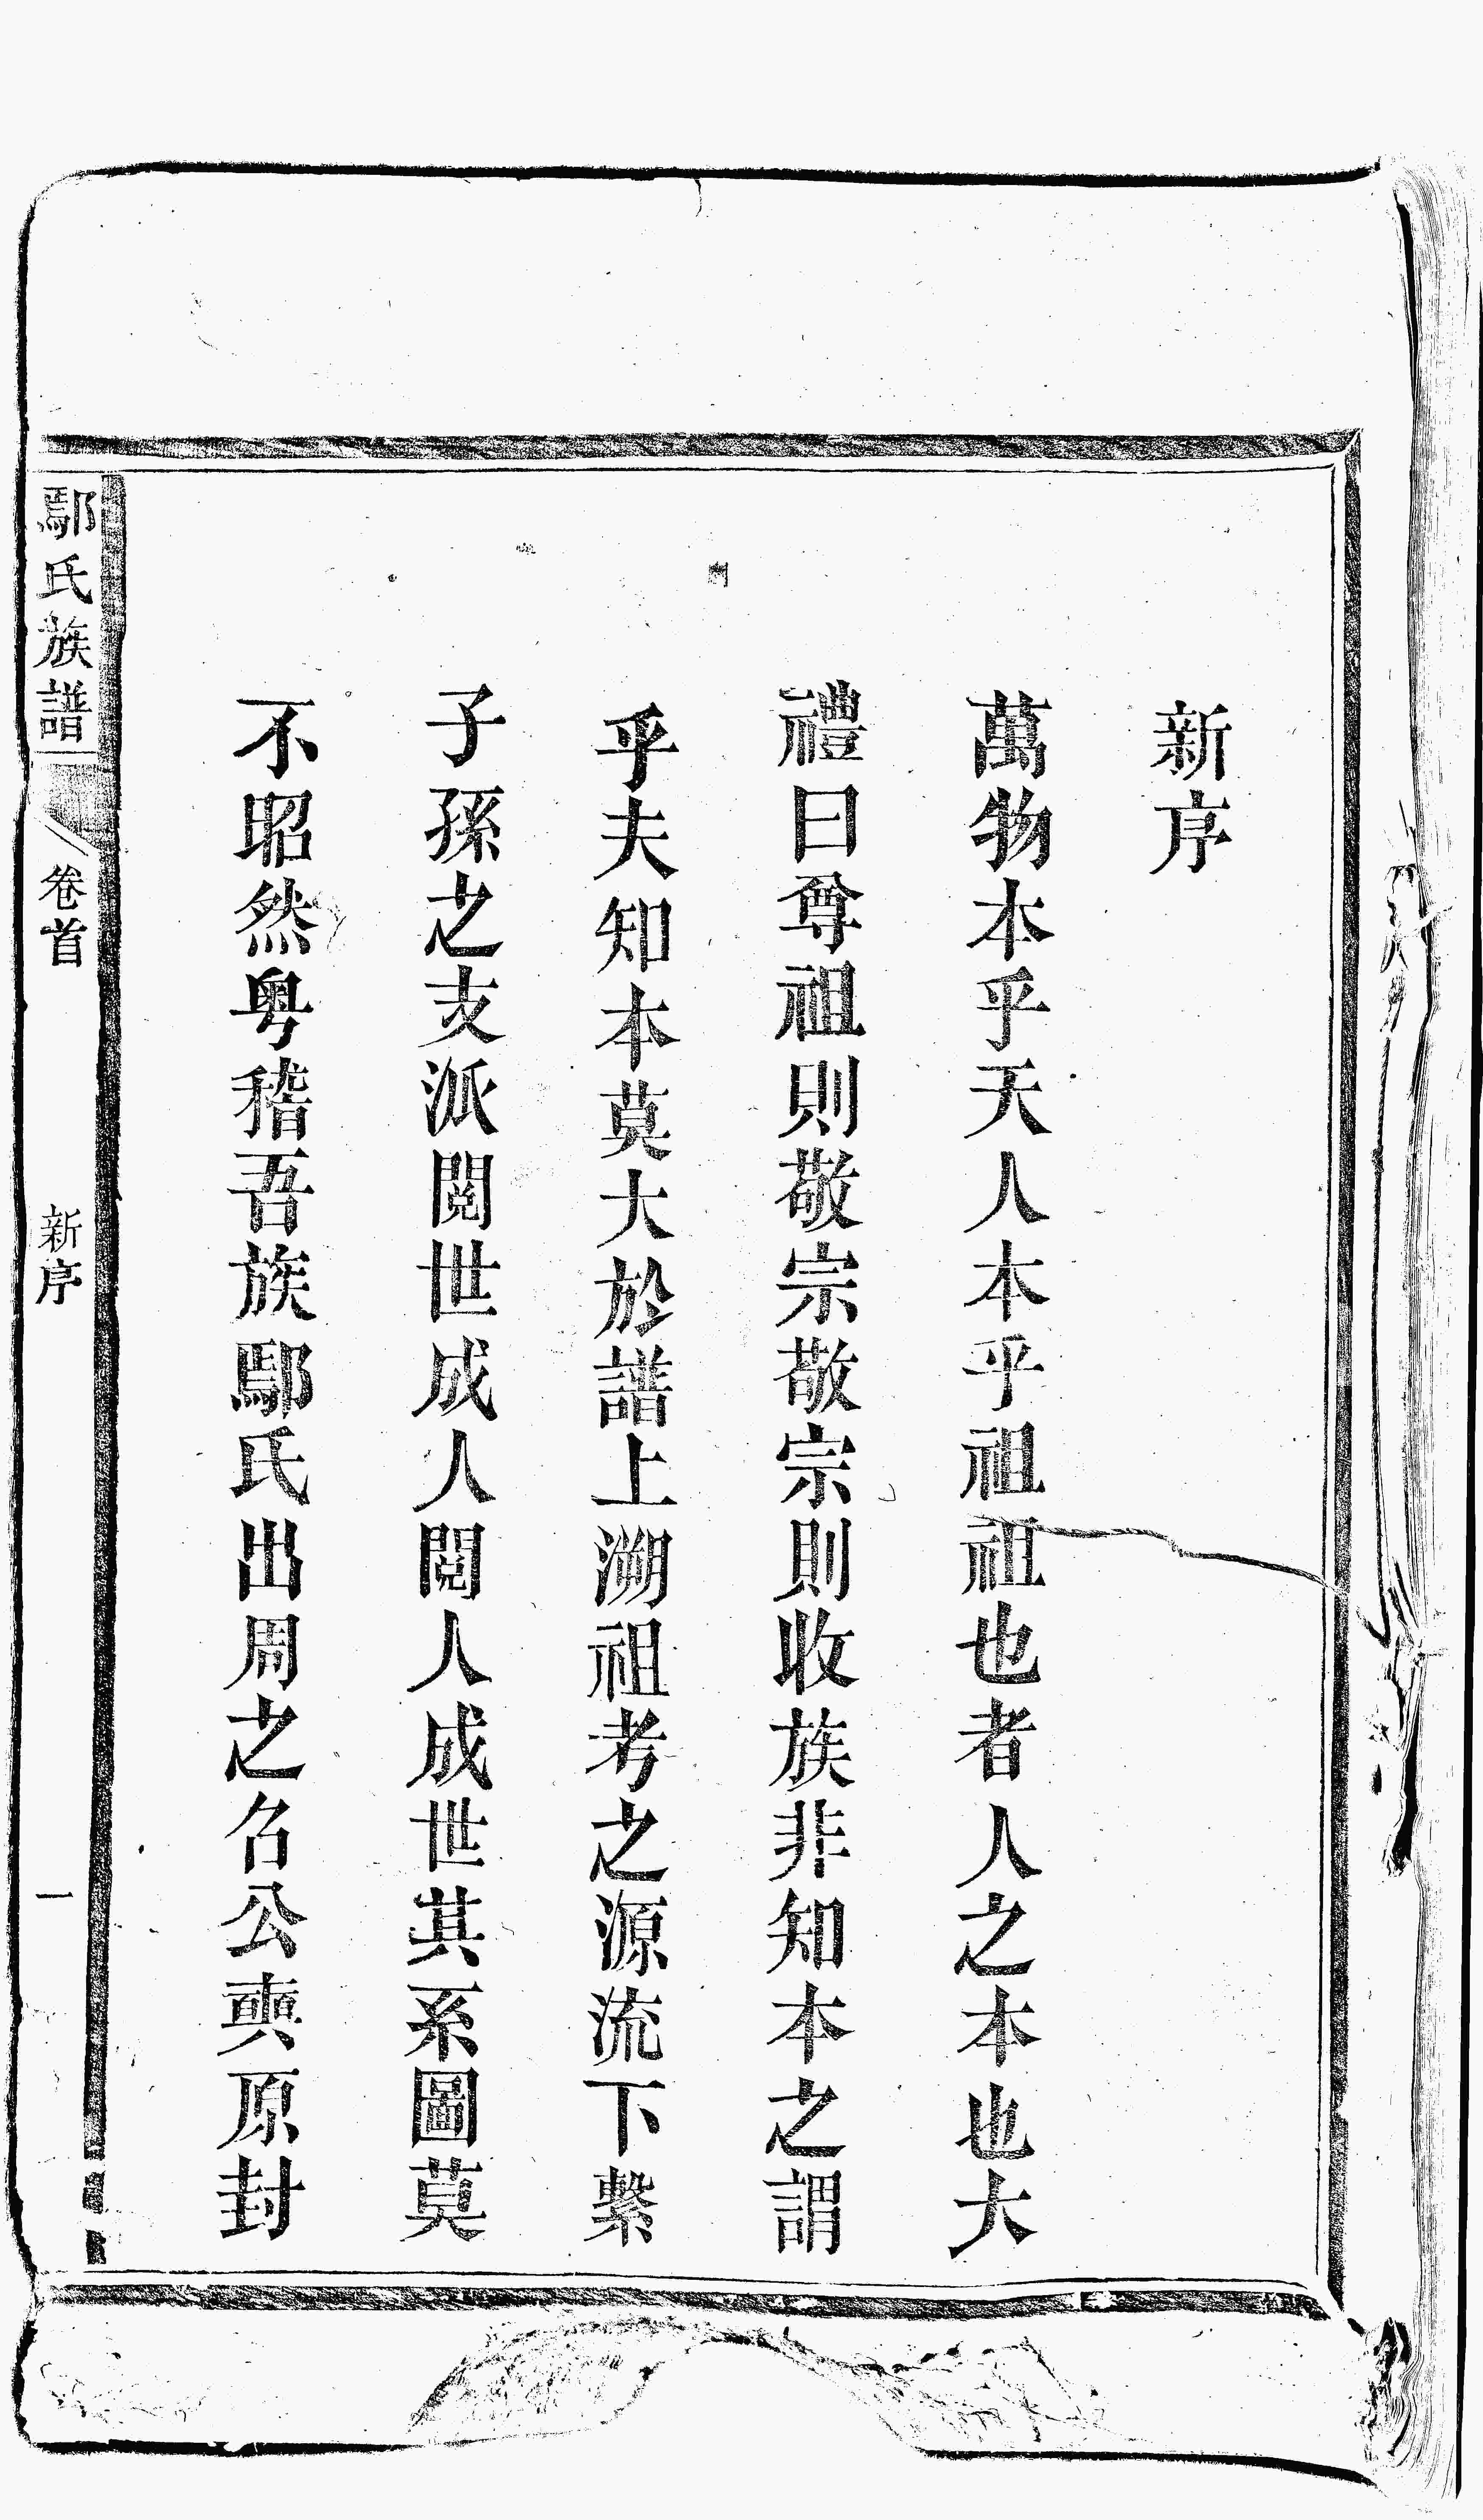 新序
萬物本乎天人本乎祖祖也者人之本也大
禮曰尊祖則敬宗敬宗則收族非知本之謂
乎夫知本莫大於譜上溯祖考之源流下繫
子孫之支派閱世成人閱人成世其系圖莫
不昭然粤稽吾族鄢氏出周之召公奭原封
鄢氏族譜 卷首 新序 一